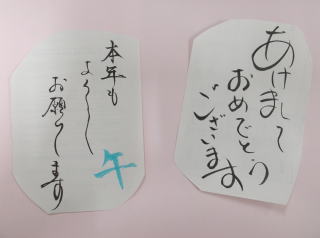 あけまして
おめでとう
ございます
本年も
よろしく
お願いします
午